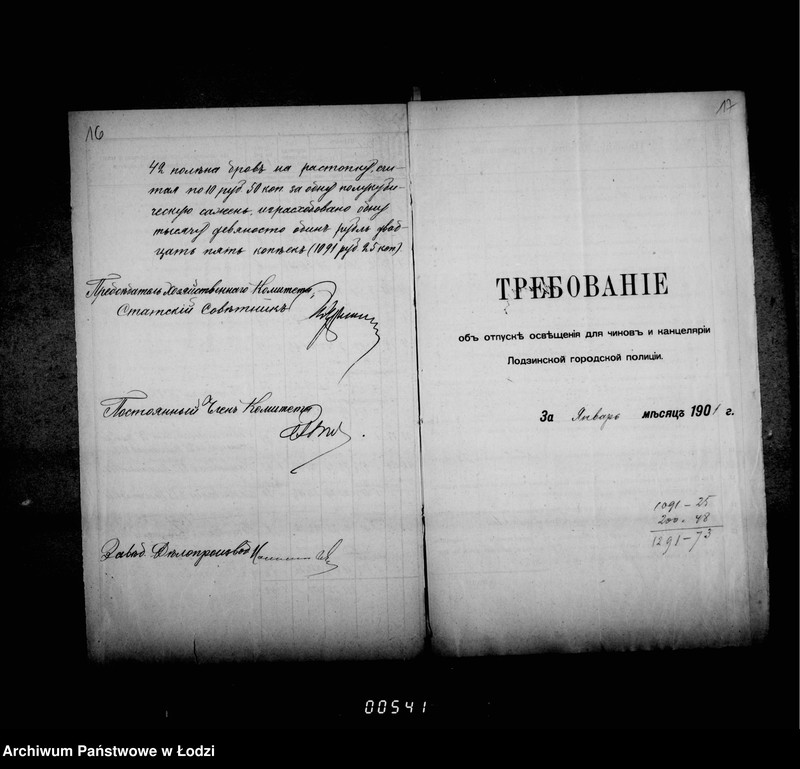 16
42 полѣна дровъ на растопку, счи-
тая по 10 руб 50 коп за одну полукуби-
ческую сажень, израсходовано одну
тысячу девяносто одинъ рубль двад-
цать пять копѣекъ (1091 руб 25 коп)
Предсѣдатель Хозяйственнаго Комитета,
Статскій Совѣтникъ
Постоянный Членъ Комитета
Завѣд. Дѣлопроизвод
17
ТРЕБОВАНІЕ
объ отпускѣ освѣщенія для чиновъ и канцеляріи
Лодзинской городской полиціи.
За Январь мѣсяцъ 1901 г.
1091 – 25
200 – 48
1291 – 73
00541
Archiwum Państwowe w Łodzi